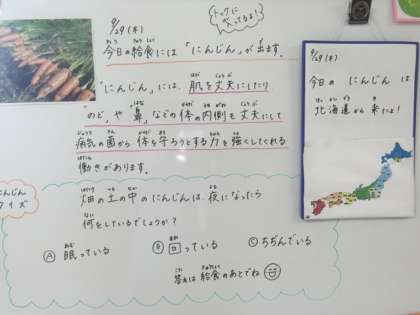 9/29(木)
トックに
入ってるよ!
今日の給食には「にんじん」が出ます。
"にんじん"には、肌を丈夫にしたり
"のど"や鼻、などの体の内側も丈夫にして
病気の菌から体を守ろうとする力を強くしてくれる
働きがあります。
にんじん
クイズ
畑の土の中のにんじんは、夜になったら
何をしているでしょうか?
Ⓐ 眠っている Ⓑ 回っている Ⓒ ちぢんでいる
答えは給食のあとでね
9/29(木)
今日の にんじん は
北海道から 来たよ!